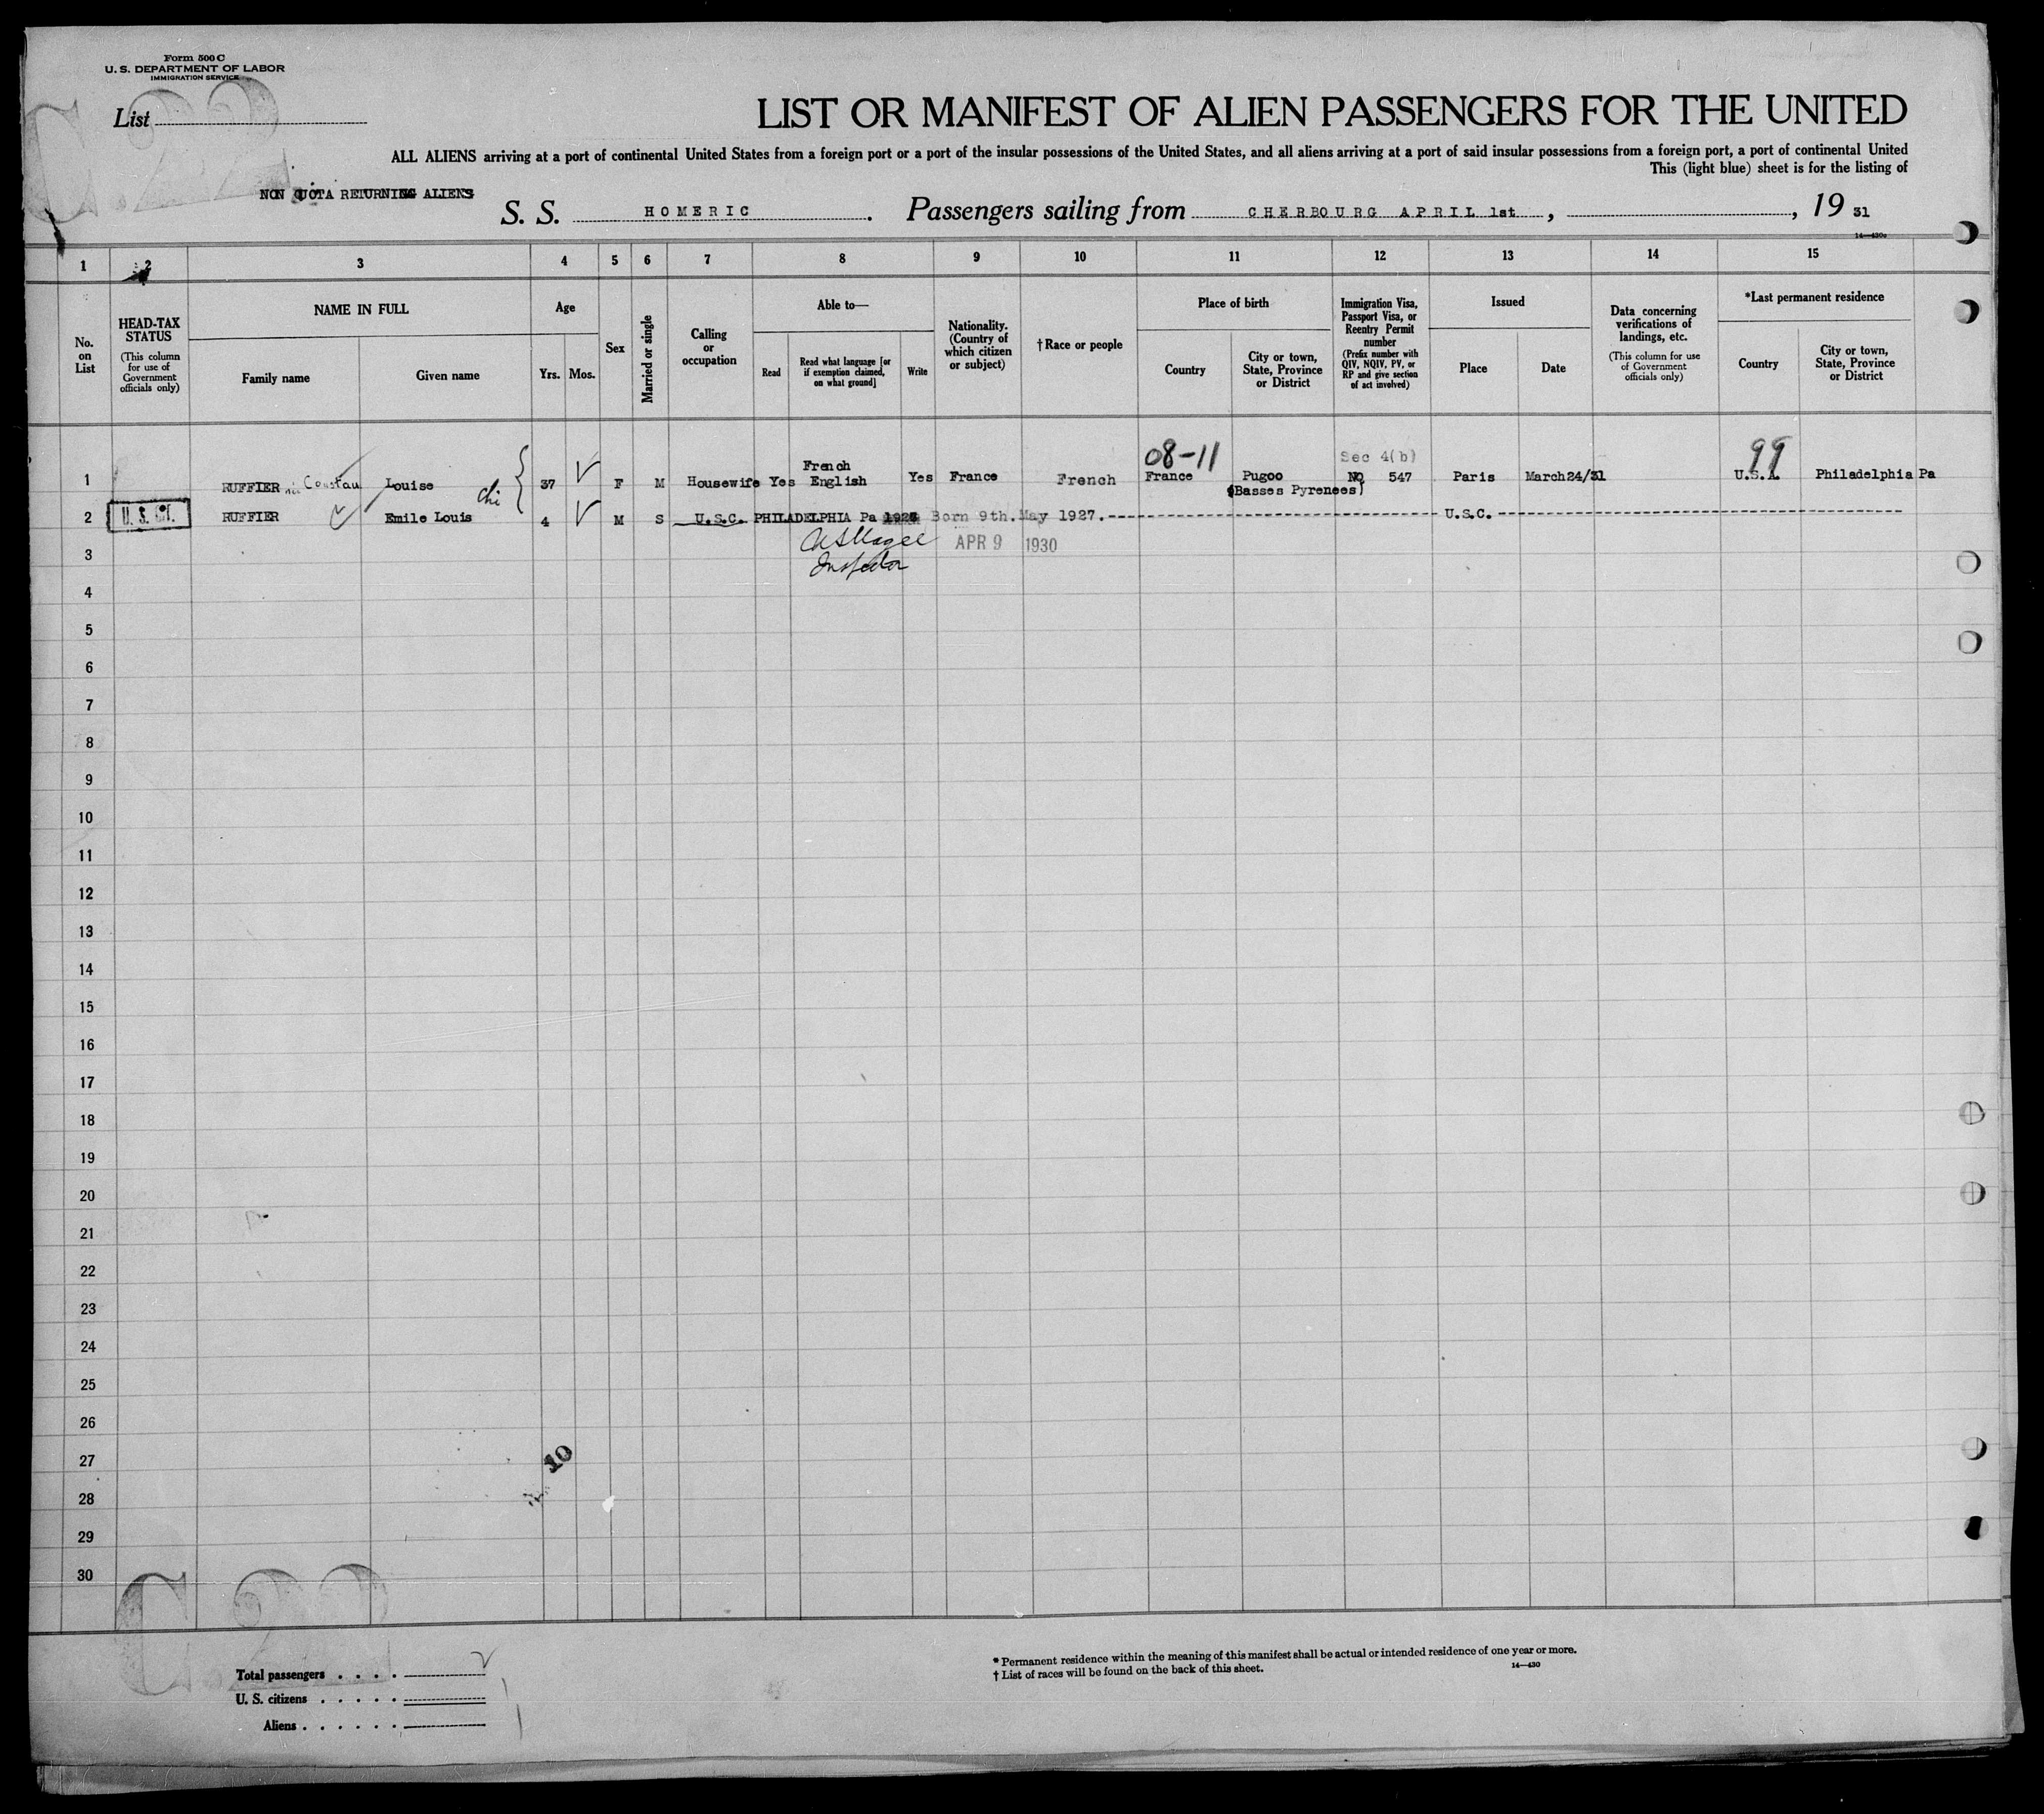 Form 500 C
U. S. DEPARTMENT OF LABOR
IMMIGRATION SERVICE
List
LIST OR MANIFEST OF ALIEN PASSENGERS FOR THE UNITED
ALL ALIENS arriving at a port of continental United States from a foreign port or a port of the insular possessions of the United States, and all aliens arriving at a port of said insular possessions from a foreign port, a port of continental United
This (light blue) sheet is for the listing of
NON QUOTA RETURNING ALIENS
S. S. HOMERIC. Passengers sailing from CHERBOURG APRIL 1st, , 19 31
14—430c
1 2 3 4 5 6 7 8 9 10 11 12 13 14 15
No. on List
HEAD-TAX STATUS
(This column for use of Government officials only)
NAME IN FULL
Family name
Given name
Age
Yrs. Mos.
Sex
Married or single
Calling or occupation
Able to—
Read
Read what language [or if exemption claimed, on what ground]
Write
Nationality. (Country of which citizen or subject)
†Race or people
Place of birth
Country
City or town, State, Province or District
Immigration Visa, Passport Visa, or Reentry Permit number
(Prefix number with QIV, NQIV, PV, or RP and give section of act involved)
Issued
Place
Date
Data concerning verifications of landings, etc.
(This column for use of Government officials only)
*Last permanent residence
Country
City or town, State, Province or District
08-11 Sec 4(b) 99
1 RUFFIER née Coustau Louise 37 F M Housewife Yes French English Yes France French France Pugoo (Basses Pyrenees) No 547 Paris March24/31 U.S.A. Philadelphia Pa
2 U. S. CT. RUFFIER Emile Louis 4 M S U.S.C. PHILADELPHIA Pa Born 9th. May 1927. U.S.C.
3 APR 9 1930
Inspector
4
5
6
7
8
9
10
11
12
13
14
15
16
17
18
19
20
21
22
23
24
25
26
27
28
29
30
10
C 22
Total passengers
U. S. citizens
Aliens
* Permanent residence within the meaning of this manifest shall be actual or intended residence of one year or more.
† List of races will be found on the back of this sheet.
14—430